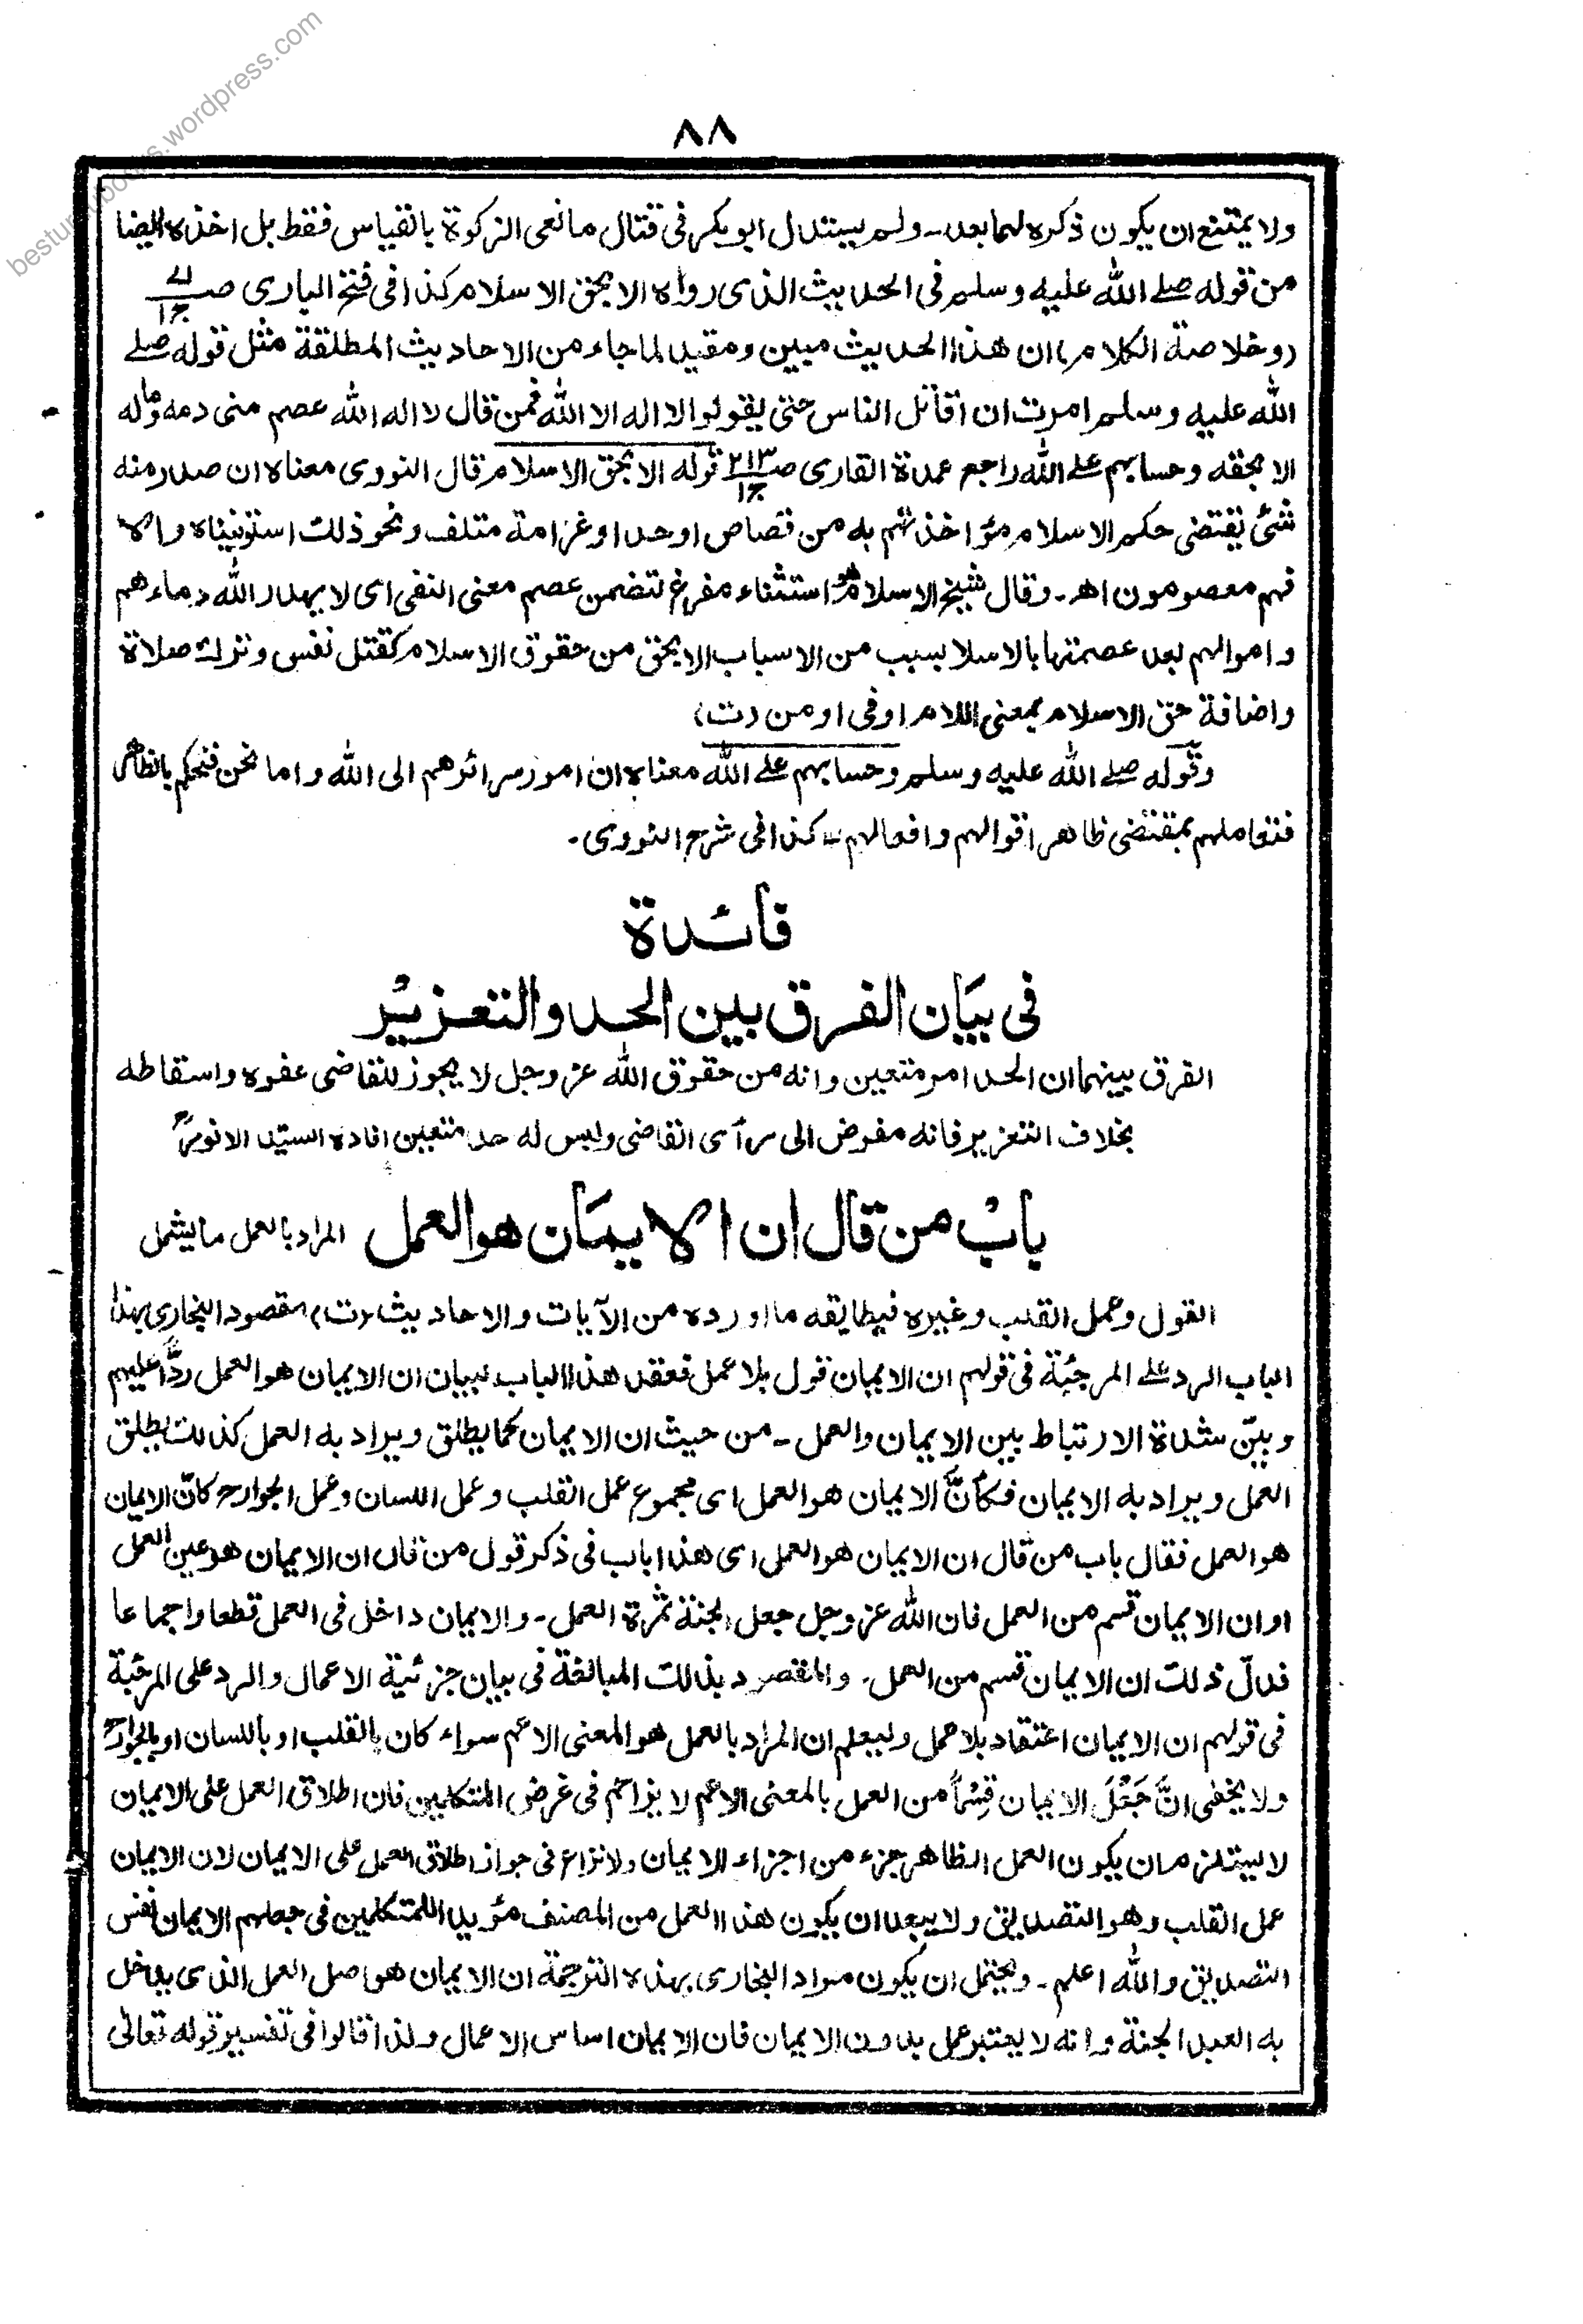 ٨٨
ولا يمتنع ان يكون ذكره لهما بعد۔ ولم يستدل ابو بكر فى قتال مانعى الزكوة بالقياس فقط بل اخذه ايضا
من قوله صلے الله عليه وسلم فى الحديث الذى رواه الا بحق الاسلام كذا فى فتح البارى صـ ج١
(وخلاصة الكلام) ان هذا الحديث مبين ومقيد لما جاء من الاحاديث المطلقة مثل قوله صلے
الله عليه وسلم امرت ان اقاتل الناس حتى يقولوا لا اله الا الله فمن قال لا اله الا الله عصم منى دمه وماله
الا بحقه وحسابهم علے الله راجع عمدة القارى صـ٢١٣ ج١ قوله الا بحق الاسلام قال النووى معناه ان صدر منه
شئ يقتضى حكم الاسلام مؤاخذتهم به من قصاص او حد او غرامة متلف ونحو ذلك استوفيناه والا
فهم معصومون اهـ۔ وقال شيخ الاسلام هو استثناء مفرغ لتضمن عصم معنى النفى اى لا يهدر الله دماءهم
واموالهم بعد عصمتها بالاسلا بسبب من الاسباب الا بحق من حقوق الاسلام كقتل نفس وترك صلاة
واضافة حق الاسلام بمعنى اللام او فى او من (ت)
وقوله صلے الله عليه وسلم وحسابهم علے الله معناه ان امور سرائرهم الى الله واما نحن فنحكم بالظاهر
فنعاملهم بمقتضى ظاهر اقوالهم وافعالهم۔ كذا فى شرح النووى۔
فائدة
فى بيان الفرق بين الحد والتعزير
الفرق بينهما ان الحد امر متعين وانه من حقوق الله عز وجل لا يجوز للقاضى عفوه واسقاطه
بخلاف التعزير فانه مفوض الى رأى القاضى وليس له حد متعين افاده السيد الانورؒ
باب من قال ان الايمان هو العمل المراد بالعمل ما يشمل
القول وعمل القلب وغيره فيطابقه ما اورده من الآيات والاحاديث (ت) مقصود البخارى بهذا
الباب الرد علے المرجئة فى قولهم ان الايمان قول بلا عمل فعقد هذا الباب لبيان ان الايمان هو العمل ردًّا عليهم
وبيّن شدة الارتباط بين الايمان والعمل۔ من حيث ان الايمان كما يطلق ويراد به العمل كذلك يطلق
العمل ويراد به الايمان فكأنّ الايمان هو العمل اى مجموع عمل القلب وعمل اللسان وعمل الجوارح كانّ الايمان
هو العمل فقال باب من قال ان الايمان هو العمل اى هذا باب فى ذكر قول من قال ان الايمان هو عين العمل
او ان الايمان قسم من العمل فان الله عز وجل جعل الجنة ثمرة العمل۔ والايمان داخل فى العمل قطعا واجماعا
فدلّ ذلك ان الايمان قسم من العمل۔ والمقصود بذالك المبالغة فى بيان جزئية الاعمال والرد على المرجئة
فى قولهم ان الايمان اعتقاد بلا عمل وليعلم ان المراد بالعمل هو المعنى الاعم سواء كان بالقلب او باللسان او بالجوارح
ولا يخفى انَّ جَعْلَ الايمان قِسْماً من العمل بالمعنى الاعم لا يزاحم فى غرض المتكلمين فان اطلاق العمل على الايمان
لا يستلزم ان يكون العمل الظاهر جزء من اجزاء الايمان ولا نزاع فى جواز اطلاق العمل على الايمان لان الايمان
عمل القلب وهو التصديق ولا يبعد ان يكون هذا العمل من المصنف مؤيدا للمتكلمين فى جعلهم الايمان نفس
التصديق والله اعلم۔ ويحتمل ان يكون مراد البخارى بهذه الترجمة ان الايمان هو اصل العمل الذى يدخل
به العبد الجنة وانه لا يعتبر عمل بدون الايمان فان الايمان اساس الاعمال ولذا قالوا فى تفسير قوله تعالى